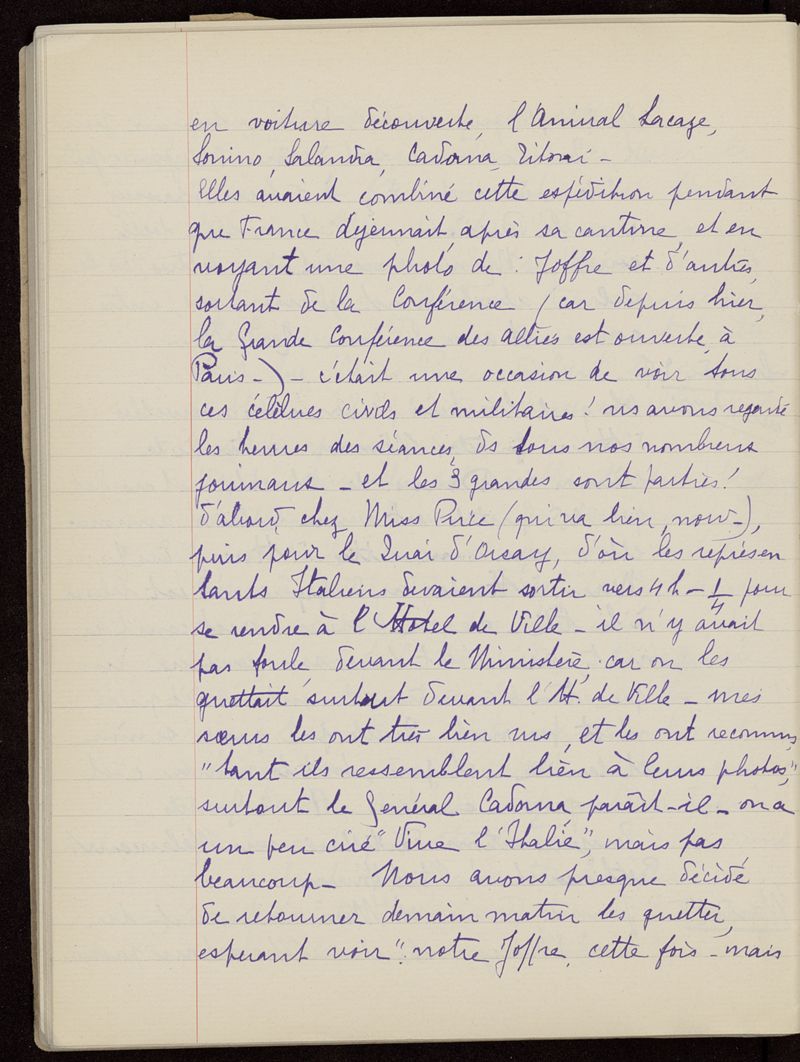 en voiture découverte, l'Amiral Lacaze,
Sonino, Salandra, Cadorna, Titoni -
Elles avaient combiné cette expédition pendant
que France déjeunait, après sa cantine, et en
voyant une photo de : Joffre et d'autres,
sortant de la Conférence (car depuis hier,
la Grande Conférence des Alliés est ouverte, à
Paris -) - c'était une occasion de voir tous
ces célèbres civils et militaires ! ns avons regardé
les heures des séances, ds tous nos nombreux
journaux - et les 3 grandes sont parties !
d'abord, chez Miss Price (qui va bien, now -),
puis pour le Quai d'Orsay, d'où les représen
tants Italiens devaient sortir vers 4 h - 1/4 pour
se rendre à l'Hotel de Ville - il n'y avait
pas foule, devant le Ministère, car on les
guettait surtout devant l'H. de Ville - mes
sœurs les ont très bien vus, et les ont reconnus,
"tant ils ressemblent bien à leurs photos,"
surtout le Général Cadorna, paraît-il - on a
un peu crié "Vive l'Italie", mais pas
beaucoup - Nous avons presque décidé
de retourner demain matin les guetter,
espérant voir "notre Joffre, cette fois - mais